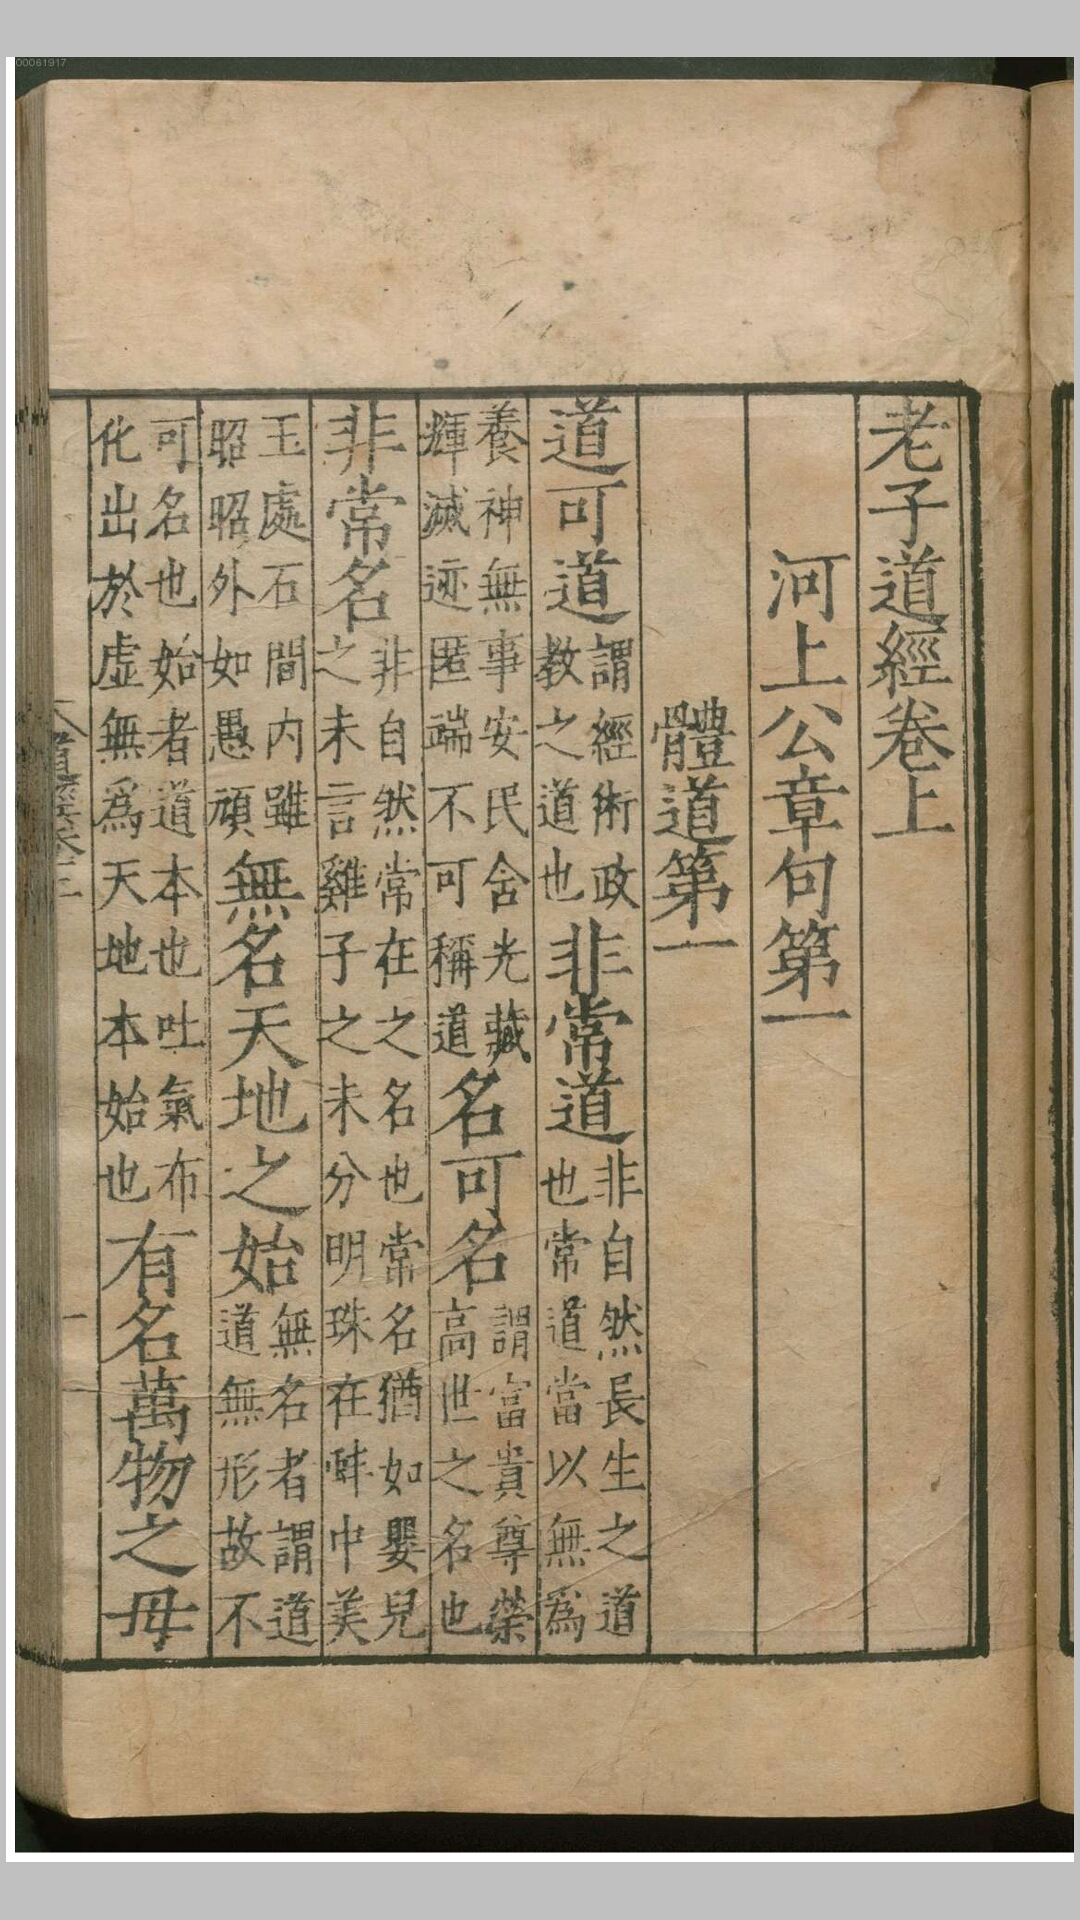 00061917
老子道經卷上
河上公章句第一
體道第一
道可道謂經術政教之道也非常道非自然長生之道也常道當以無為
養神無事安民含光藏輝滅迹匿端不可稱道名可名謂富貴尊榮高世之名也
非常名非自然常在之名也常名猶如嬰兒之未言雞子之未分明珠在蚌中美
玉處石間内雖昭昭外如愚頑無名天地之始無名者謂道道無形故不
可名也始者道本也吐氣布化出於虛無為天地本始也有名萬物之母